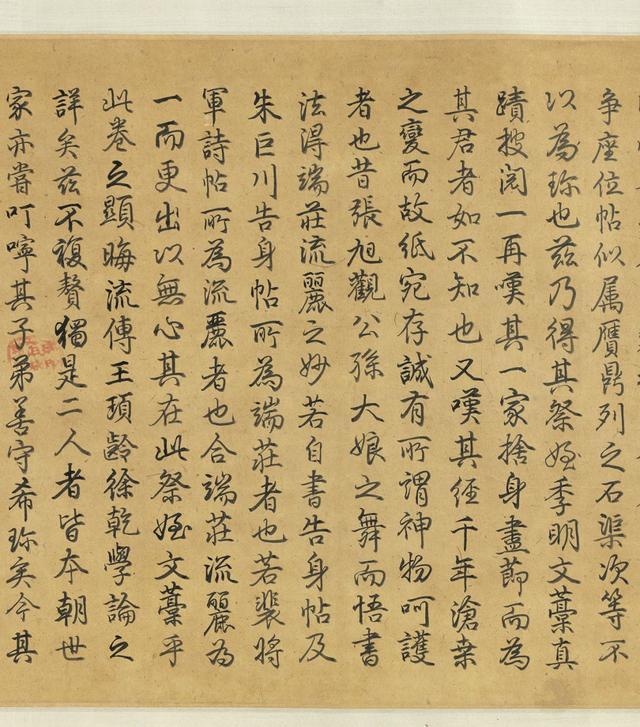 争座位帖似属贋鼎列之石渠次等不
以為珎也兹乃得其祭姪季明文藁真
蹟披阅一再嘆其一家捨身盡節而為
其君者如不知也又嘆其經千年滄桒
之變而故纸宛存誠有所謂神物呵護
者也昔張旭觀公孫大娘之舞而悟書
法得端莊流麗之妙若自書告身帖及
朱巨川告身帖所為端莊者也若裴將
軍詩帖所為流麗者也合端莊流麗為
一而更出以無心其在此祭姪文藁乎
此卷之顯晦流傳王頊齡徐乾學論之
詳矣兹不複贅獨是二人者皆本朝世
家亦嘗叮嚀其子弟善守希珎矣今其